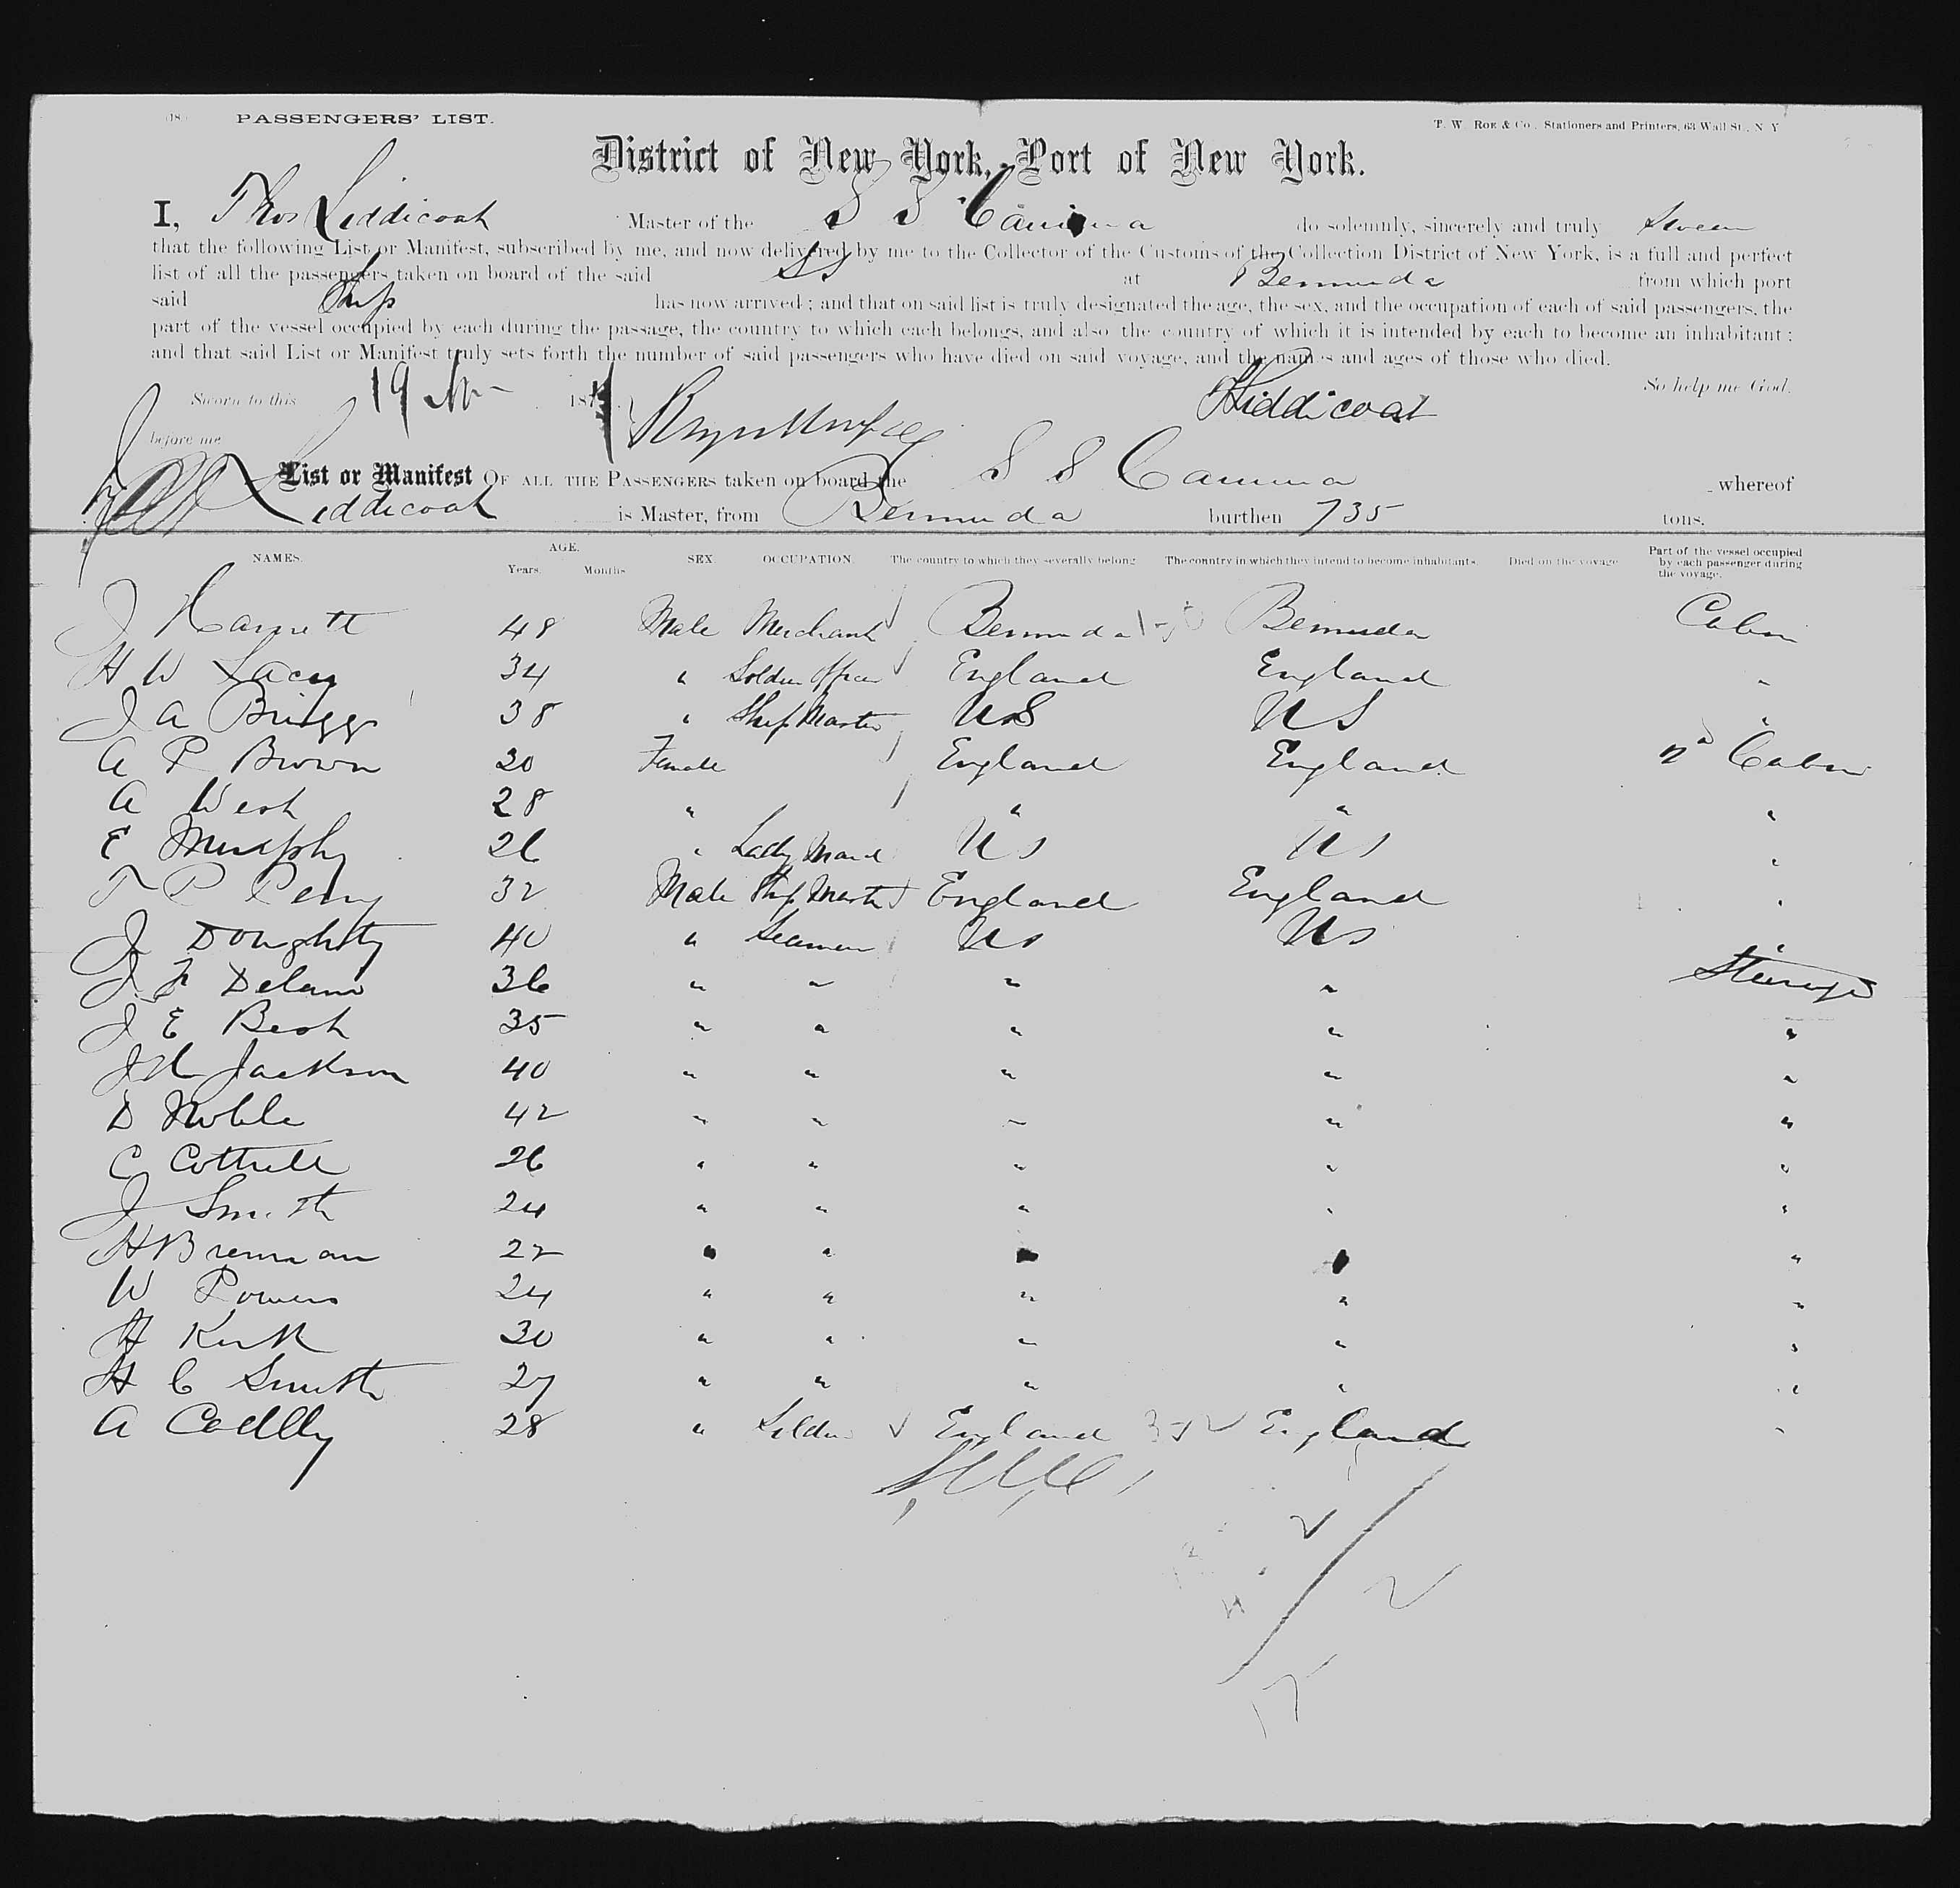 PASSENGERS' LIST.
T. W. Roe & Co., Stationers and Printers, 63 Wall St., N. Y.
District of New York, Port of New York.
I, Thos Liddicoat Master of the S S Canima do solemnly, sincerely and truly Swear
that the following List or Manifest, subscribed by me, and now delivered by me to the Collector of the Customs of the Collection District of New York, is a full and perfect
list of all the passengers taken on board of the said SS at Bermuda from which port
said Ship has now arrived; and that on said list is truly designated the age, the sex, and the occupation of each of said passengers, the
part of the vessel occupied by each during the passage, the country to which each belongs, and also the country of which it is intended by each to become an inhabitant;
and that said List or Manifest truly sets forth the number of said passengers who have died on said voyage, and the names and ages of those who died.
So help me God.
Sworn to this 19 187
Liddicoat
before me
List or Manifest OF ALL THE PASSENGERS taken on board the S S Canima whereof
Liddicoat is Master, from Bermuda burthen 735 tons.
NAMES. AGE. Years. Months. SEX. OCCUPATION. The country to which they severally belong The country in which they intend to become inhabitants. Died on the voyage Part of the vessel occupied by each passenger during the voyage.
J Harnett 48 Male Merchant Bermuda Bermuda Cabin
H W Lacy 34 " Soldier Officer England England "
J A Briggs 38 " Ship Master US US "
A P Brown 30 Female England England 2d Cabin
A West 28 " " " "
E Murphy 26 " Lady Maid US US "
T P Perry 32 Male Ship Master England England "
J Doughty 40 " Seaman US US "
J F Delano 36 " " " " Steerage
J E Besh 35 " " " " "
J H Jackson 40 " " " " "
D Noble 42 " " " " "
C Cottrell 26 " " " " "
J Smith 24 " " " " "
H Brennan 22 " " " " "
W Powers 24 " " " " "
H Kirk 30 " " " " "
H C Smith 27 " " " " "
A Codlly 28 " Soldier England England "